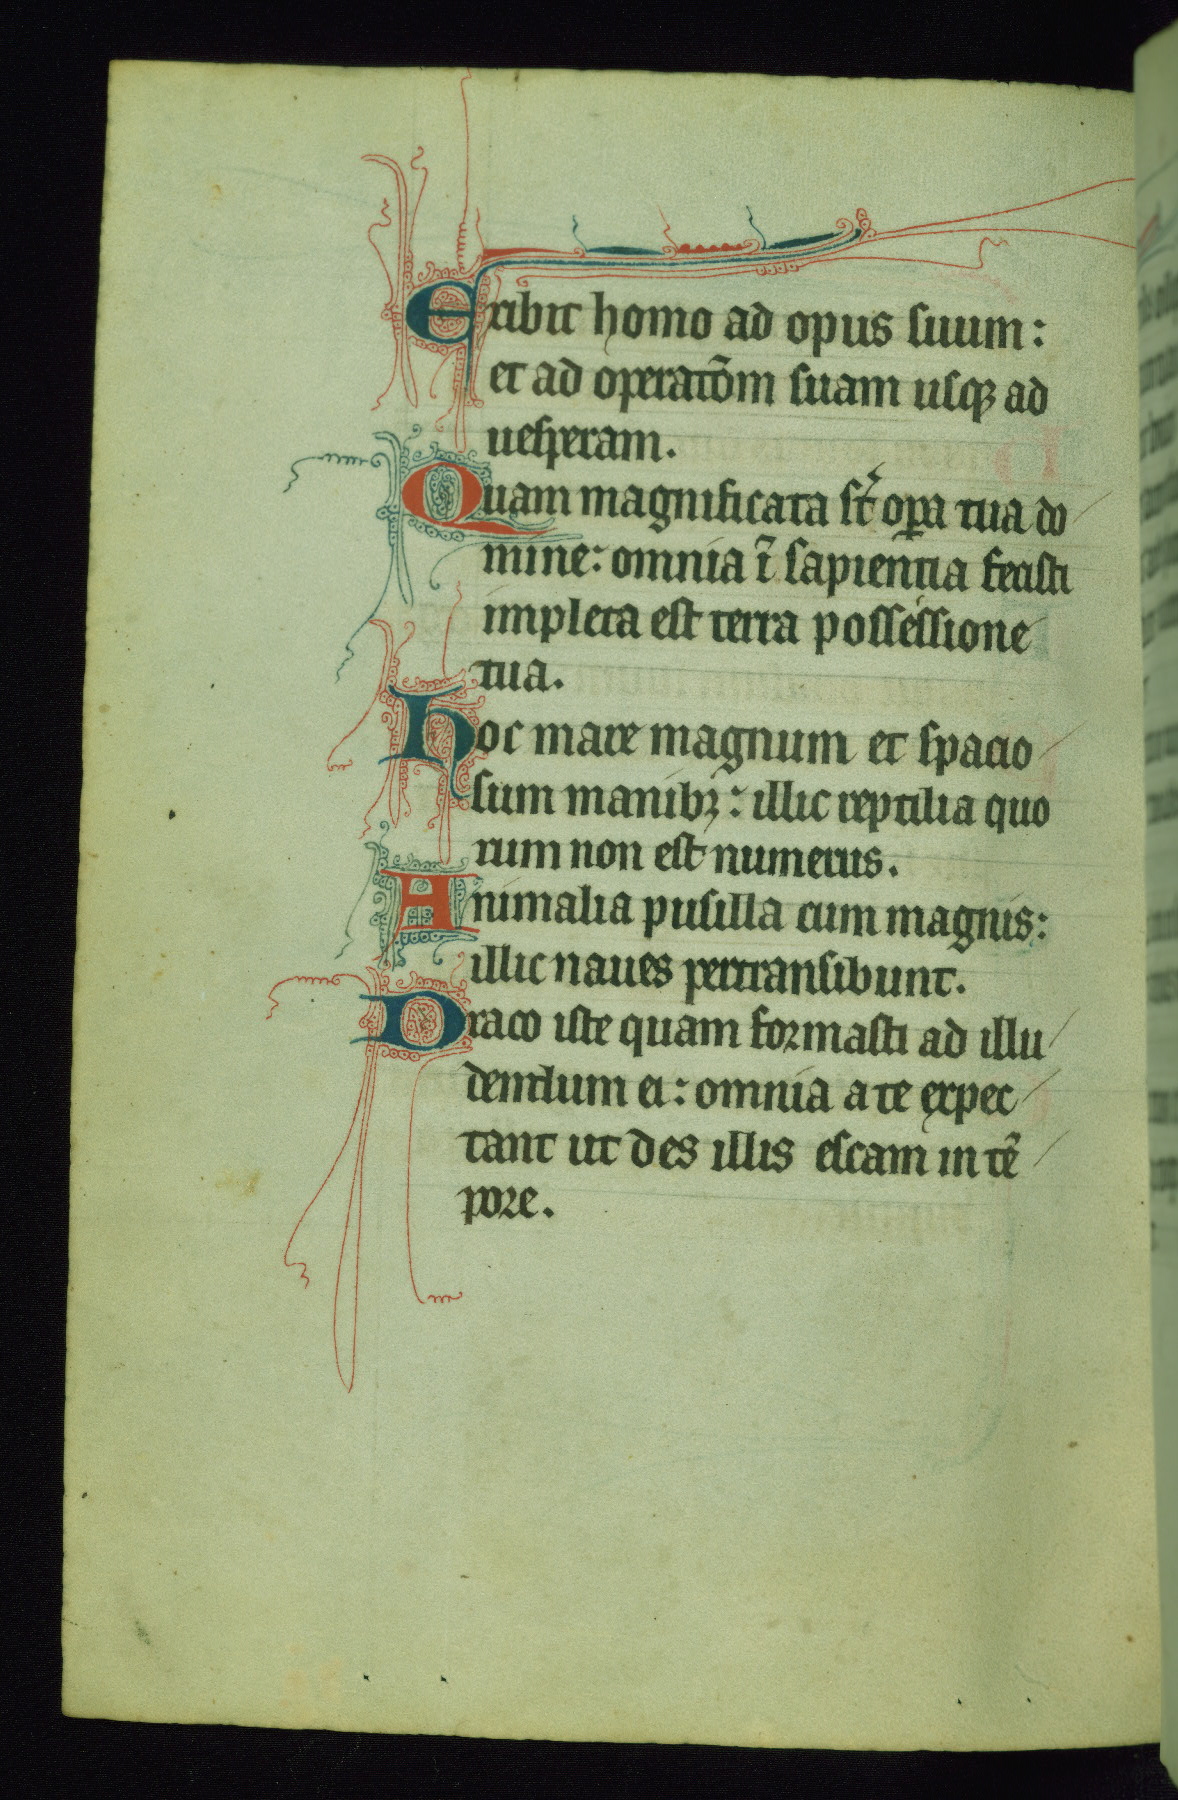 Exibit homo ad opus suum:
et ad operatōm suam usqꝫ ad
uesperam.
Quam magnificata st̄ oꝑa tua do
mine: omnia ī sapientia fecisti
impleta est terra possessione
tua.
hoc mare magnum et spacio
sum manibꝫ: illic reptilia quo
rum non est numerus.
Animalia pusilla cum magnis:
illic naues pertransibunt.
Draco iste quam formasti ad illu
dendum ei: omnia a te expec
tant ut des illis escam in tē
pore.